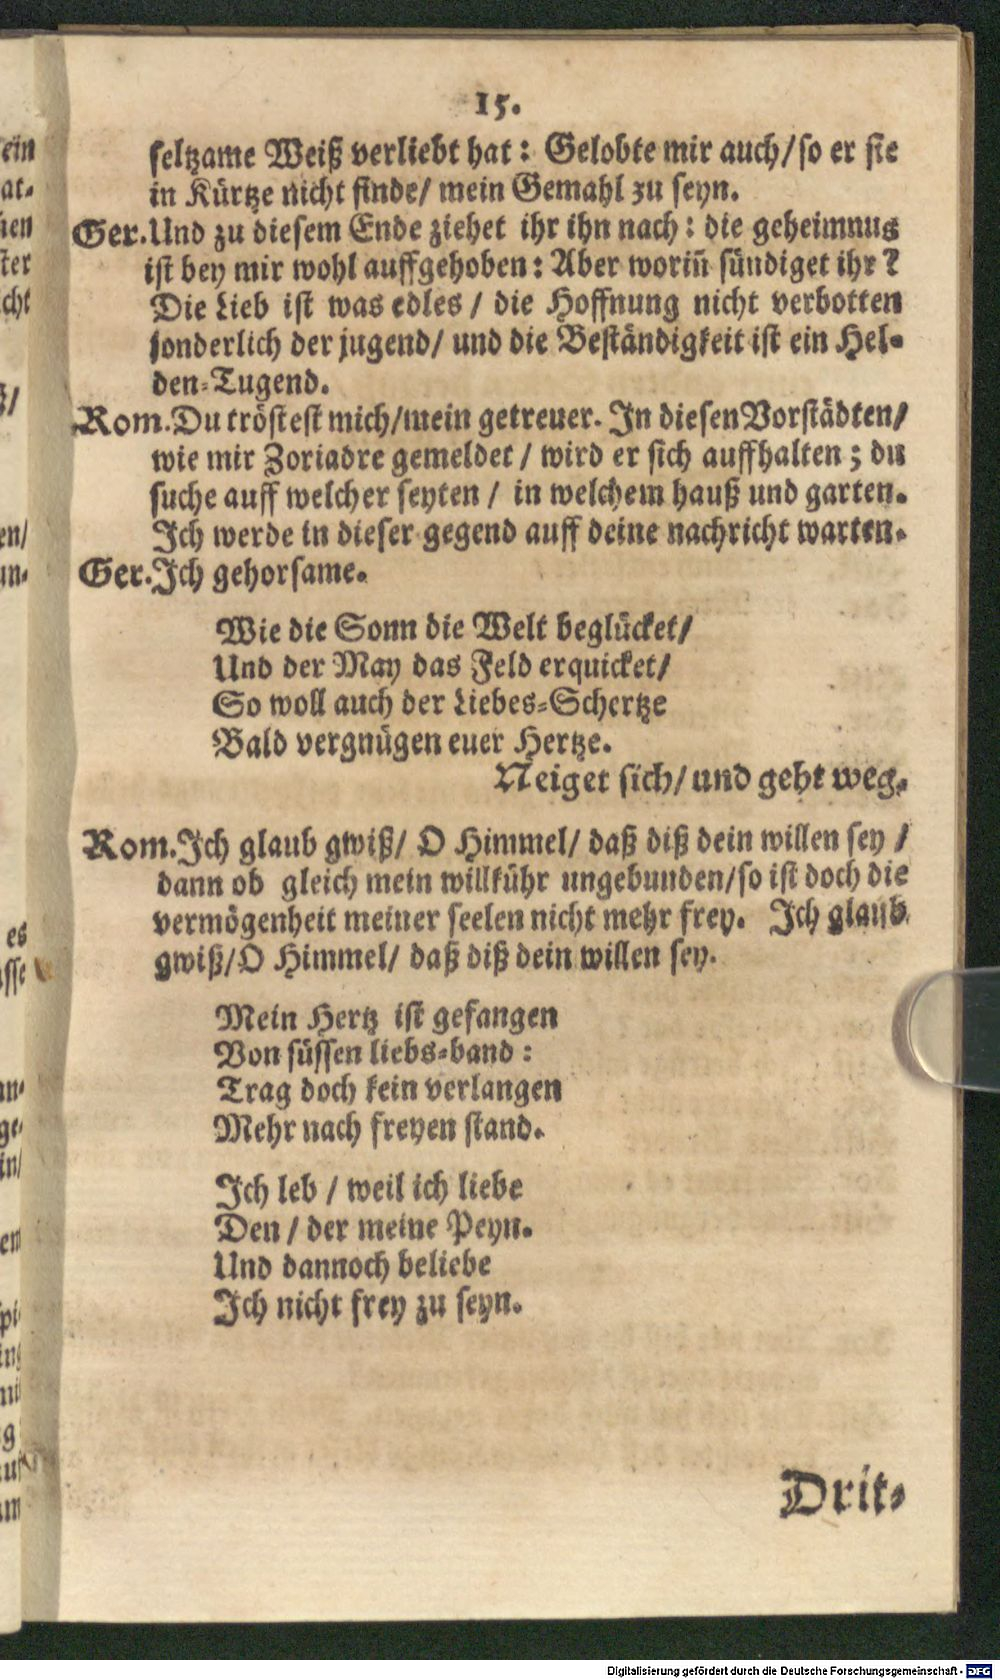 15.
seltzame Weiß verliebt hat: Gelobte mir auch/so er sie
in Kürtze nicht finde/ mein Gemahl zu seyn.
Ger. Und zu diesem Ende ziehet ihr ihn nach: die geheimnus
ist bey mir wohl auffgehoben: Aber woriñ sündiget ihr?
Die Lieb ist was edles / die Hoffnung nicht verbotten
sonderlich der jugend/ und die Beständigkeit ist ein Hel-
den-Tugend.
Rom. Du tröstest mich/mein getreuer. In diesen Vorstädten/
wie mir Zoriadre gemeldet / wird er sich auffhalten; du
suche auff welcher seyten / in welchem hauß und garten.
Ich werde in dieser gegend auff deine nachricht warten.
Ger. Ich gehorsame.
Wie die Sonn die Welt beglücket/
Und der May das Feld erquicket/
So woll auch der Liebes-Schertze
Bald vergnügen euer Hertze.
Neiget sich/ und geht weg.
Rom. Ich glaub gwiß/ O Himmel/ daß diß dein willen sey /
dann ob gleich mein willkühr ungebunden/so ist doch die
vermögenheit meiner seelen nicht mehr frey. Ich glaub
gwiß/O Himmel/ daß diß dein willen sey.
Mein Hertz ist gefangen
Von süssen liebs-band:
Trag doch kein verlangen
Mehr nach freyen stand.
Ich leb / weil ich liebe
Den / der meine Peyn.
Und dannoch beliebe
Ich nicht frey zu seyn.
Drit-
Digitalisierung gefördert durch die Deutsche Forschungsgemeinschaft - DFG